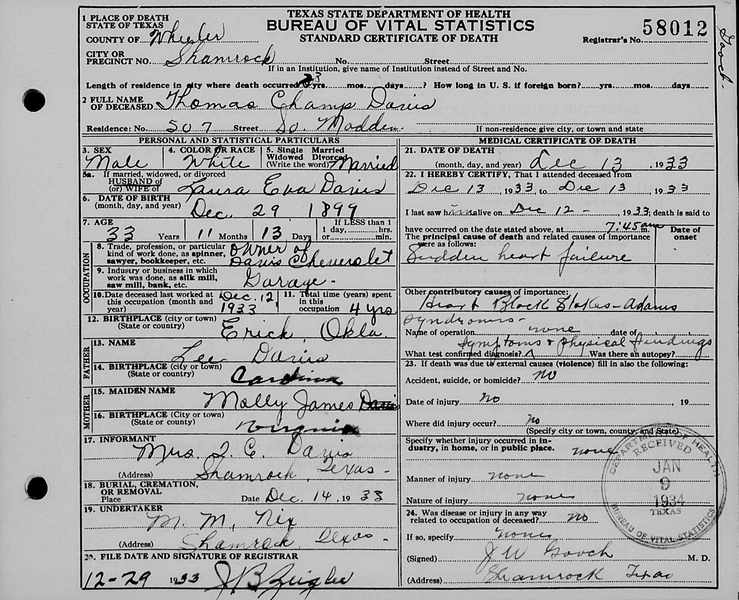 TEXAS STATE DEPARTMENT OF HEALTH
BUREAU OF VITAL STATISTICS
STANDARD CERTIFICATE OF DEATH
58012
Registrar's No.
Gooch
1 PLACE OF DEATH
STATE OF TEXAS
COUNTY OF Wheeler
CITY OR
PRECINCT NO. Shamrock No. Street
If in an Institution, give name of Institution instead of Street and No.
Length of residence in city where death occurred 23 yrs. mos. days? How long in U. S. if foreign born? yrs. mos. days
2 FULL NAME
OF DECEASED Thomas Champ Davis
Residence: No. 507 Street So. Madden
If non-residence give city, or town, and state
PERSONAL AND STATISTICAL PARTICULARS
3. SEX Male
4. COLOR OR RACE White
5. Single Married
Widowed Divorced
(Write the word) Married
5a. If married, widowed, or divorced
HUSBAND OF
(or) WIFE OF Laura Eva Davis
6. DATE OF BIRTH
(month, day, and year) Dec. 29 1899
7. AGE
33 Years 11 Months 13 Days
IF LESS than 1
1 day, hrs.
or min.
OCCUPATION
8. Trade, profession, or particular
kind of work done, as spinner,
sawyer, bookkeeper, etc.
owner of
Davis Cheverolet
9. Industry or business in which
work was done, as silk mill,
saw mill, bank, etc.
Garage
10. Date deceased last worked at
this occupation (month and
year) Dec. 12, 1933
11. Total time (years) spent
in this
occupation 4 yrs
12. BIRTHPLACE (city or town)
(State or country) Erick, Okla.
FATHER
13. NAME Lee Davis
14. BIRTHPLACE (city or town)
(State or country) Carolina
MOTHER
15. MAIDEN NAME Molly James Davis
16. BIRTHPLACE (city or town)
(State or country) Virginia
17. INFORMANT Mrs. T. C. Davis
(Address) Shamrock, Texas
18. BURIAL, CREMATION,
OR REMOVAL
Place Date Dec. 14, 1933
19. UNDERTAKER M. M. Nix
(Address) Shamrock Texas
20. FILE DATE AND SIGNATURE OF REGISTRAR
12-29 1933 J B Zeigler
MEDICAL CERTIFICATE OF DEATH
21. DATE OF DEATH
(month, day, and year) Dec 13, 1933
22. I HEREBY CERTIFY, That I attended deceased from
Dec 13 1933 to Dec 13 1933
I last saw him alive on Dec 12 - 1933, death is said to
have occurred on the date stated above, at 7:45am
The principal cause of death and related causes of importance
were as follows:
Date of
onset
Sudden heart failure
Other contributory causes of importance:
Heart Block Stokes-Adams
Syndrome
Name of operation none date of
Symptoms & Physical findings
What test confirmed diagnosis? Was there an autopsy?
23. If death was due to external causes (violence) fill in also the following:
Accident, suicide, or homicide? No
Date of injury no , 19
Where did injury occur? No
(Specify city or town, county, and State)
Specify whether injury occurred in industry, in home, or in public place. none
Manner of injury none
Nature of injury none
24. Was disease or injury in any way
related to occupation of deceased? no
If so, specify none
(Signed) J W Gooch M. D.
(Address) Shamrock Texas
DEPARTMENT OF HEALTH
RECEIVED
JAN
9
1934
TEXAS
BUREAU OF VITAL STATISTICS